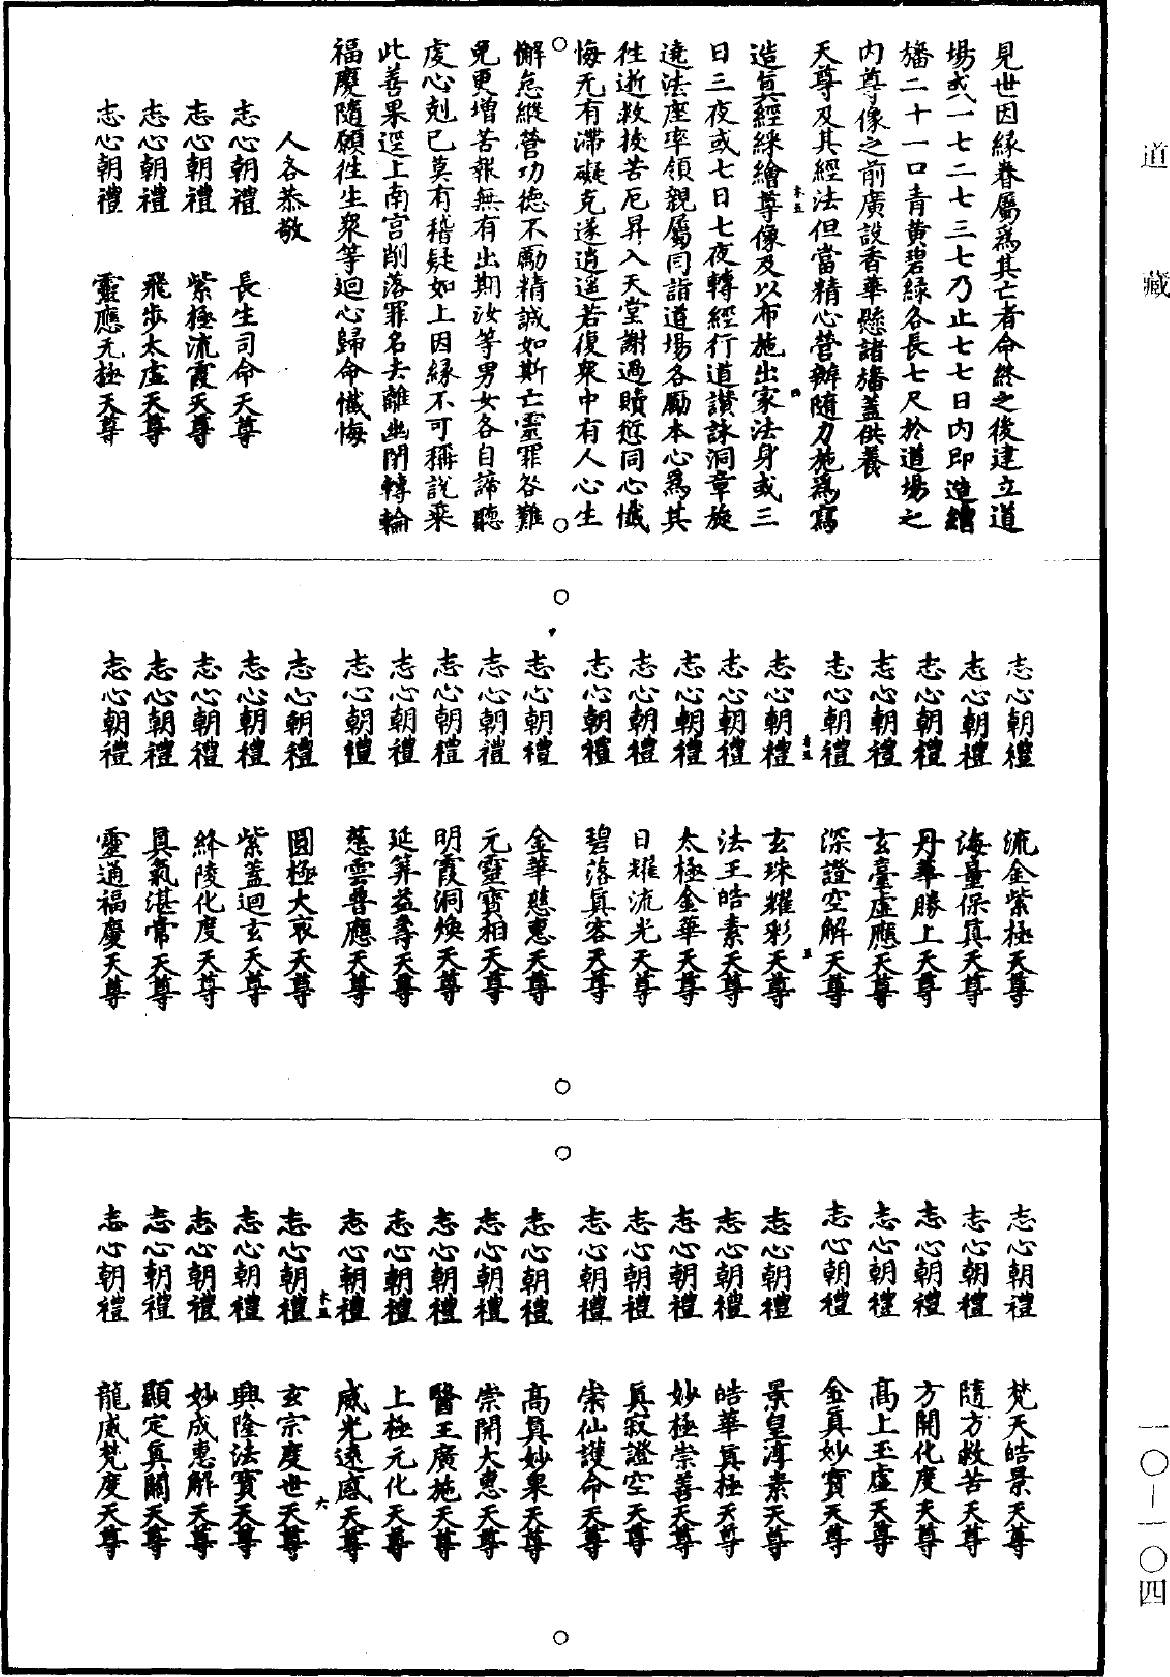 道藏
見世因緣眷屬爲其亡者命終之後建立道
場或一七二七三七乃止七七日內即造繒
旛二十一口青黃碧綠各長七尺於道場之
內尊像之前廣設香華懸諸旛蓋供養
天尊及其經法但當精心營辦隨力施爲寫
造眞經綵繪尊像及以布施出家法身或三
日三夜或七日七夜轉經行道讚詠洞章旋
遶法座率領親屬同詣道場各勵本心爲其
徃逝救拔苦厄昇入天堂謝過贖愆同心懺
悔无有滯礙克遂逍遥若復衆中有人心生
懈怠縱營功德不勵精誠如斯亡靈罪咎難
免更增苦報無有出期汝等男女各自諦聽
虔心剋已莫有稽疑如上因緣不可稱說乘
此善果逕上南宮削落罪名去離幽閉轉輪
福慶隨願徃生衆等迴心歸命懺悔
人各恭敬
志心朝禮 長生司命天尊
志心朝禮 紫極流霞天尊
志心朝禮 飛步太虛天尊
志心朝禮 靈應无極天尊
志心朝禮 流金紫極天尊
志心朝禮 海量保眞天尊
志心朝禮 丹華勝上天尊
志心朝禮 玄臺虛應天尊
志心朝禮 深證空解天尊
志心朝禮 玄珠耀彩天尊
志心朝禮 法王皓素天尊
志心朝禮 太極金華天尊
志心朝禮 日耀流光天尊
志心朝禮 碧落眞容天尊
志心朝禮 金華慈惠天尊
志心朝禮 元靈寶相天尊
志心朝禮 明霞洞煥天尊
志心朝禮 延筭益壽天尊
志心朝禮 慈雲普應天尊
志心朝禮 圓極大哀天尊
志心朝禮 紫蓋迴玄天尊
志心朝禮 絳陵化度天尊
志心朝禮 眞氣湛常天尊
志心朝禮 靈通福慶天尊
志心朝禮 梵天皓景天尊
志心朝禮 隨方救苦天尊
志心朝禮 方開化度天尊
志心朝禮 高上玉虛天尊
志心朝禮 金眞妙寶天尊
志心朝禮 景皇淳素天尊
志心朝禮 皓華眞極天尊
志心朝禮 妙極崇善天尊
志心朝禮 眞寂證空天尊
志心朝禮 崇仙護命天尊
志心朝禮 高眞妙果天尊
志心朝禮 崇開大惠天尊
志心朝禮 醫王廣施天尊
志心朝禮 上極元化天尊
志心朝禮 威光遠感天尊
志心朝禮 玄宗度世天尊
志心朝禮 興隆法寶天尊
志心朝禮 妙成惠解天尊
志心朝禮 顯定眞關天尊
志心朝禮 龍威梵度天尊
一〇—一〇四